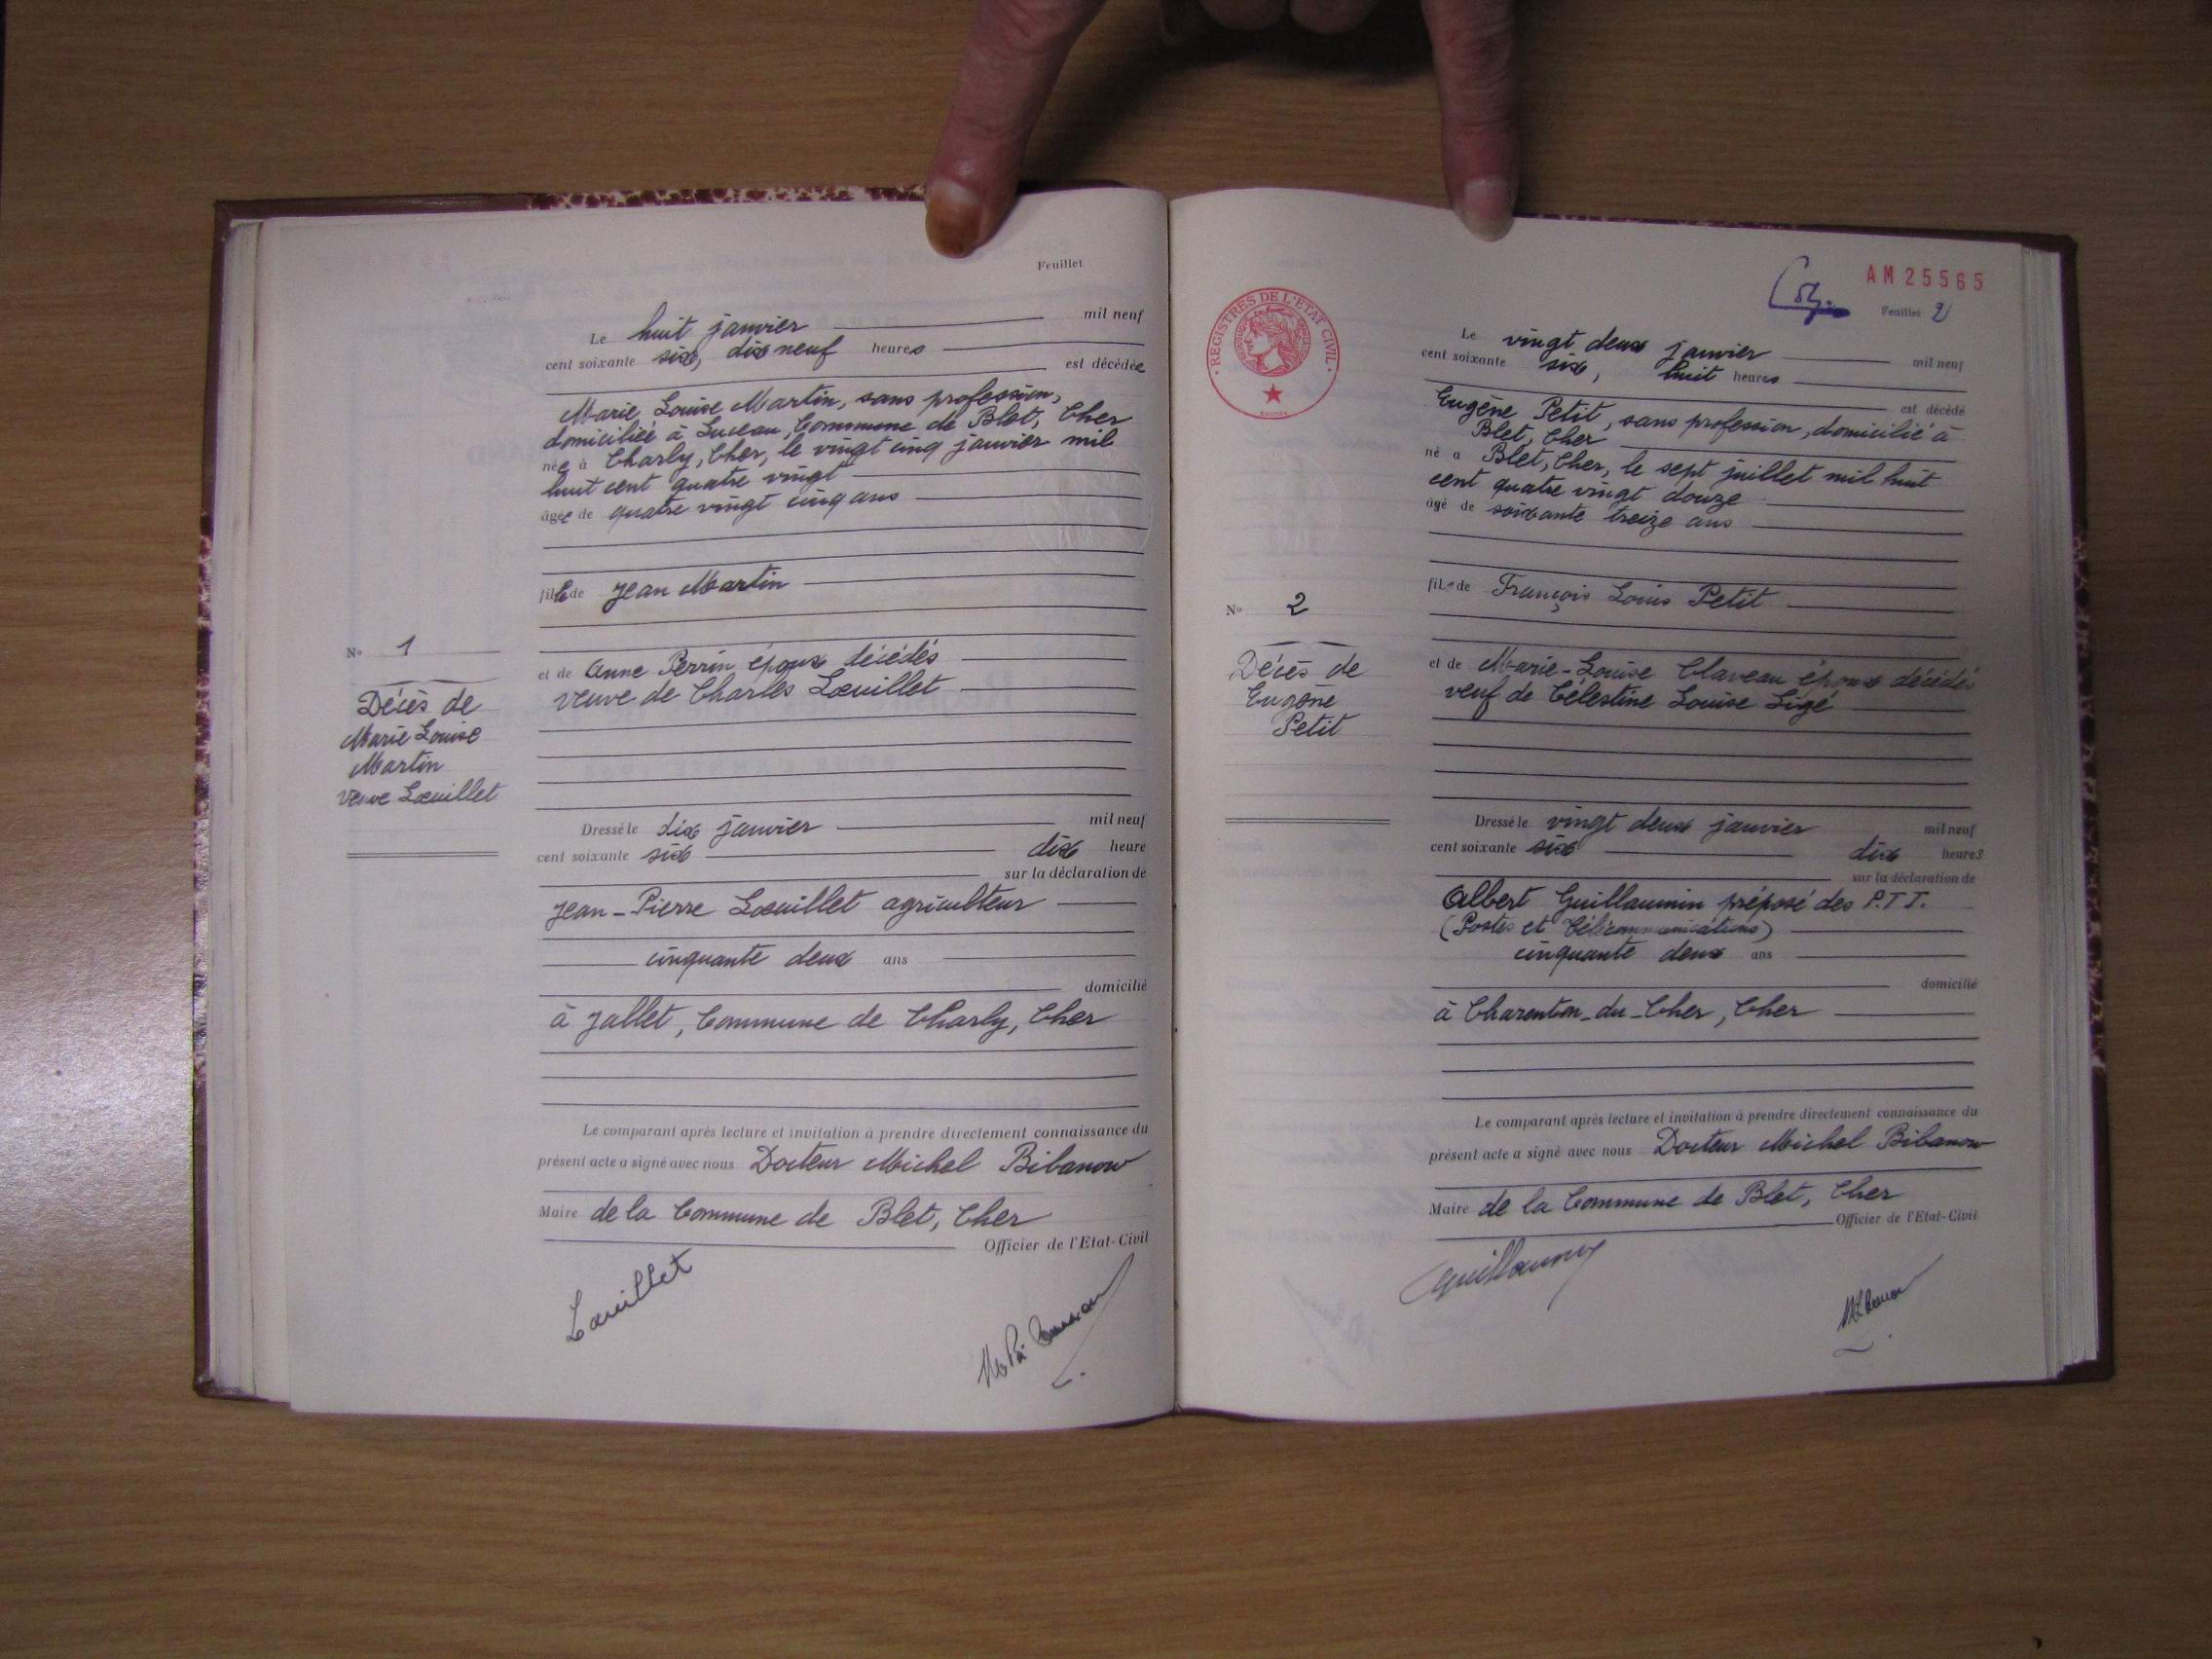 Feuillet
Le huit janvier mil neuf
cent soixante six, dix neuf heures
est décédée
Marie Louise Martin, sans profession,
domiciliée à Luceau, Commune de Blet, Cher
née à Charly, Cher, le vingt cinq janvier mil
huit cent quatre vingt
âgée de quatre vingt cinq ans
fille de Jean Martin
et de Anne Perrin époux décédés
veuve de Charles Lœuillet
N° 1
Décès de
Marie Louise
Martin
veuve Lœuillet
Dressé le dix janvier mil neuf
cent soixante six dix heure
sur la déclaration de
Jean-Pierre Lœuillet agriculteur
cinquante deux ans
domicilié
à Jallet, Commune de Charly, Cher
Le comparant après lecture et invitation à prendre directement connaissance du
présent acte a signé avec nous Docteur Michel Bibanow
Maire de la Commune de Blet, Cher
Officier de l'Etat-Civil
Lœuillet
AM 25565
Feuillet 2
REGISTRES DE L'ETAT CIVIL
Le vingt deux janvier mil neuf
cent soixante six, huit heures
est décédé
Eugène Petit, sans profession, domicilié à
Blet, Cher
né a Blet, Cher, le sept juillet mil huit
cent quatre vingt douze
âgé de soixante treize ans
fils de François Louis Petit
et de Marie-Louise Claveau époux décédés
veuf de Célestine Louise Ligé
N° 2
Décès de
Eugène
Petit
Dressé le vingt deux janvier mil neuf
cent soixante six dix heures
sur la déclaration de
Albert Guillaumin préposé des P.T.T.
(Postes et Télécommunications)
cinquante deux ans
domicilié
à Charenton-du-Cher, Cher
Le comparant après lecture et invitation à prendre directement connaissance du
présent acte a signé avec nous Docteur Michel Bibanow
Maire de la Commune de Blet, Cher
Officier de l'Etat-Civil